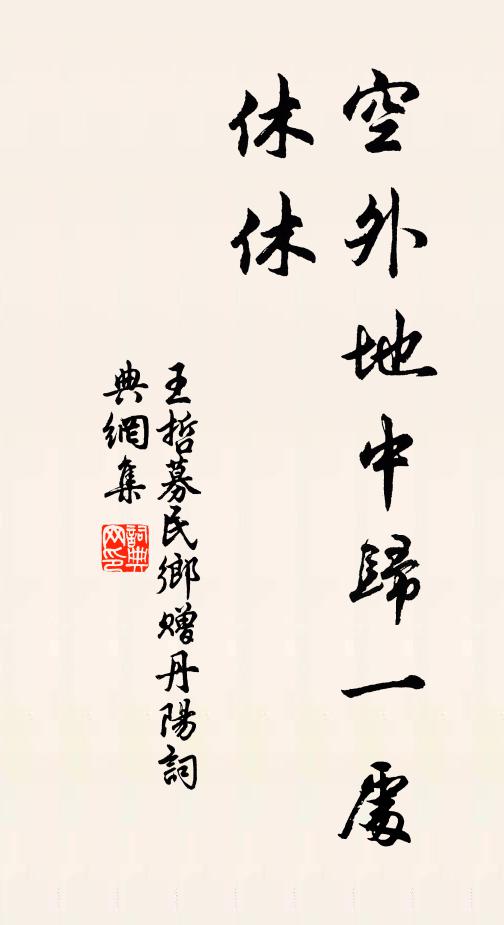 空外地中歸一處
休休
王哲慕民鄉贈丹陽詞
典網集
詞典網印